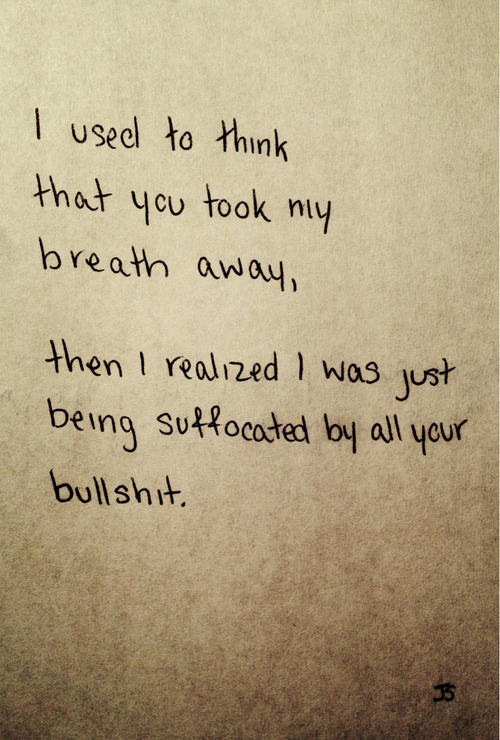 I used to think
that you took my
breath away,
then I realized I was just
being suffocated by all your
bullshit.
JS